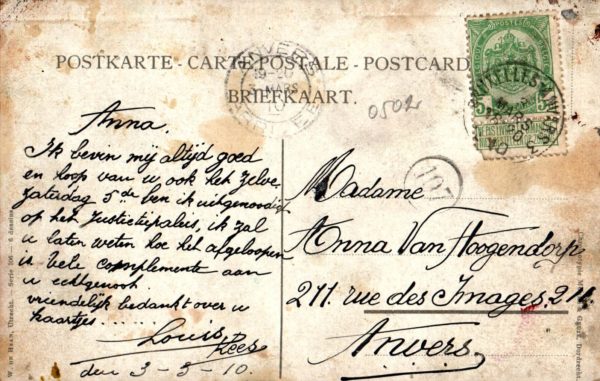 POSTKARTE - CARTE POSTALE - POSTCARD
BRIEFKAART.
ANVERS
MARS
10
0502
107
Anna.
Ik bevin mij altijd goed
en hoop van u ook het zelve
zaterdag 5de ben ik uitgenoodigt
op het Justictiepaleis, ik zal
u laten weten hoe het afgeloopen
is vele complemente aan
u echtgenoot
vriendelijk bedankt over u
kaartjes.....
Louis
Kees
den 3-3-10.
Madame
Anna Van Hoogendorp
211. rue des Images. 211
Anvers.
W. DE HAAN, Utrecht. - Serie 106 - 6 dessins.